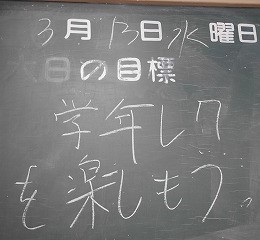 3月13日水曜日
本日の目標
学年レク
を楽しもう。